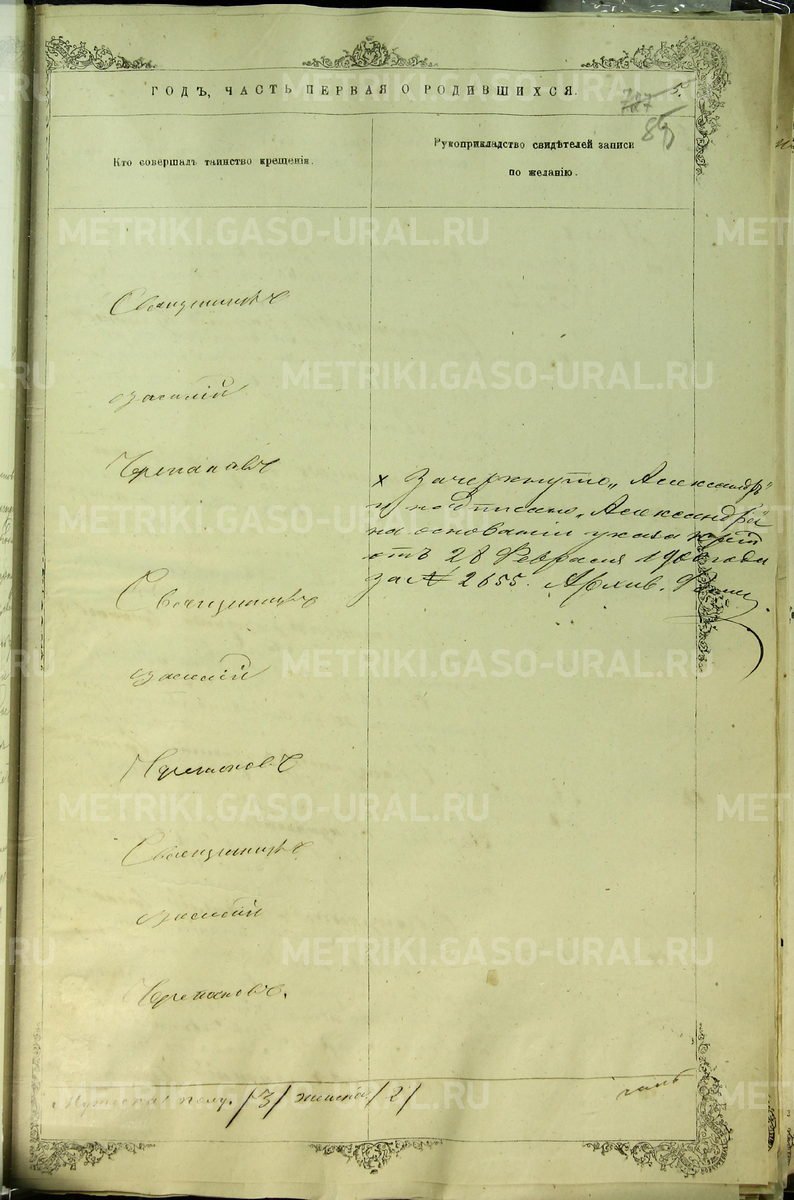 ГОДЪ, ЧАСТЬ ПЕРВАЯ О РОДИВШИХСЯ.
5.
Кто совершалъ таинство крещенія.
Рукоприкладство свидѣтелей записи
по желанію.
Священникъ
Василій
Черепановъ
х Зачеркнуто „Александръ"
и подписано „Александра"
на основаніи указа
отъ 28 Февраля 190 года
за № 2655. Архив.
Священникъ
Василій
Черепановъ
Священникъ
Василій
Черепановъ.
Мужеска полу /3/ женска /2/
METRIKI.GASO-URAL.RU